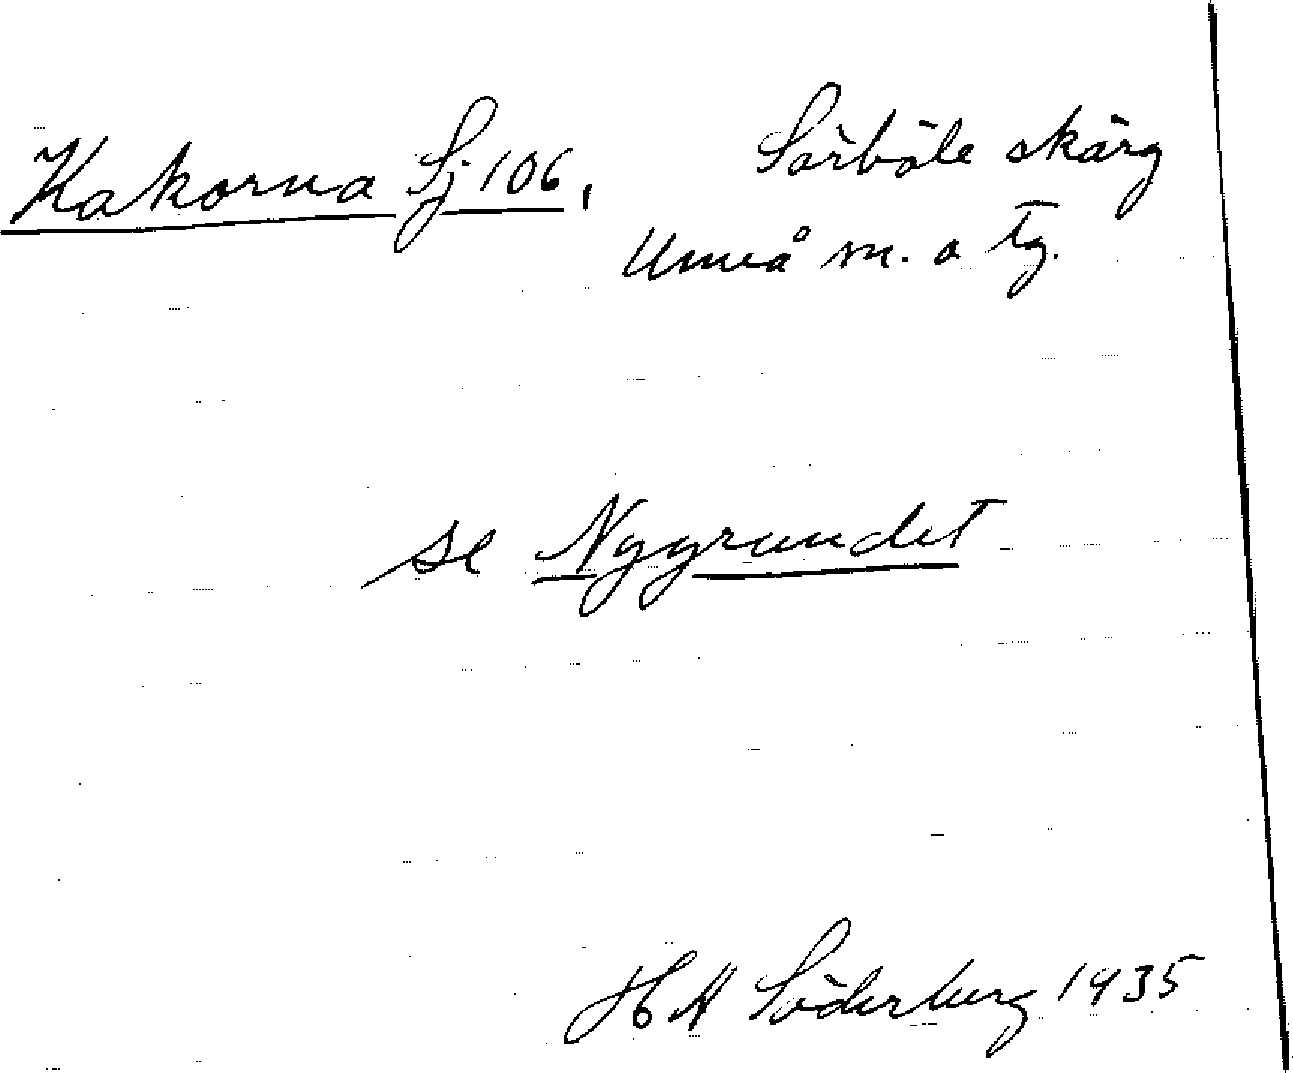 Kakorna Sj 106, Sörböle skärg
Umeå m. o tg.
se Nygrundet
H A Söderberg 1935